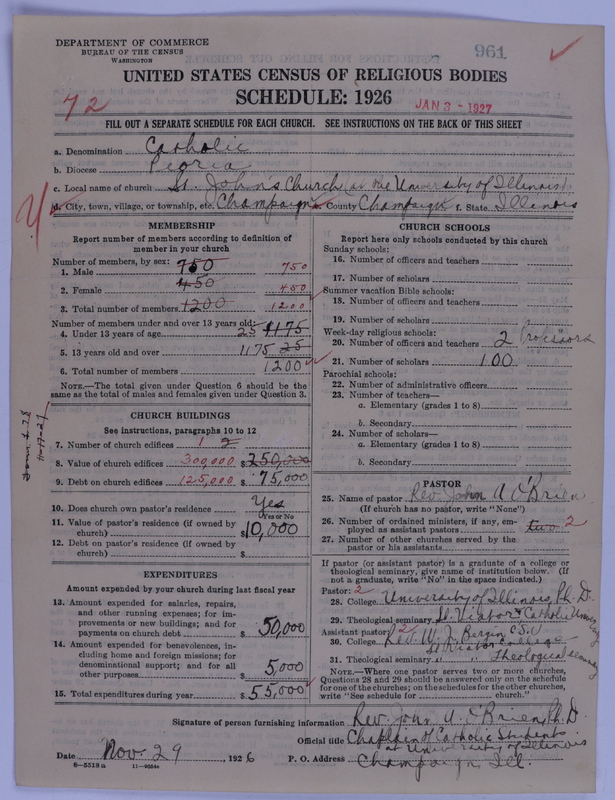 DEPARTMENT OF COMMERCE
BUREAU OF THE CENSUS
WASHINGTON
961
UNITED STATES CENSUS OF RELIGIOUS BODIES
SCHEDULE: 1926
72
JAN 3 - 1927
FILL OUT A SEPARATE SCHEDULE FOR EACH CHURCH. SEE INSTRUCTIONS ON THE BACK OF THIS SHEET
a. Denomination Catholic
b. Diocese Peoria
c. Local name of church St. John's Church (at the University of Illinois)
d. City, town, village, or township, etc. Champaign e. County Champaign f. State Illinois
MEMBERSHIP
Report number of members according to definition of
member in your church
Number of members, by sex:
1. Male 750 750
2. Female 450 450
3. Total number of members 1200 1200
Number of members under and over 13 years old:
4. Under 13 years of age 25 1175
5. 13 years old and over 1175 25
6. Total number of members 1200
NOTE.—The total given under Question 6 should be the
same as the total of males and females given under Question 3.
CHURCH BUILDINGS
See instructions, paragraphs 10 to 12
7. Number of church edifices 1 2
8. Value of church edifices 300,000 $250,000
9. Debt on church edifices 125,000 $75,000
10. Does church own pastor's residence Yes
Yes or No
11. Value of pastor's residence (if owned by
church) $10,000
12. Debt on pastor's residence (if owned by
church) $
EXPENDITURES
Amount expended by your church during last fiscal year
13. Amount expended for salaries, repairs,
and other running expenses; for im-
provements or new buildings; and for
payments on church debt $50,000
14. Amount expended for benevolences, in-
cluding home and foreign missions; for
denominational support; and for all
other purposes $5,000
15. Total expenditures during year $55,000
CHURCH SCHOOLS
Report here only schools conducted by this church
Sunday schools:
16. Number of officers and teachers
17. Number of scholars
Summer vacation Bible schools:
18. Number of officers and teachers
19. Number of scholars
Week-day religious schools:
20. Number of officers and teachers 2 Professors
21. Number of scholars 100
Parochial schools:
22. Number of administrative officers
23. Number of teachers—
a. Elementary (grades 1 to 8)
b. Secondary
24. Number of scholars—
a. Elementary (grades 1 to 8)
b. Secondary
PASTOR
25. Name of pastor Rev. John A O'Brien
(If church has no pastor, write "None")
26. Number of ordained ministers, if any, em-
ployed as assistant pastors two 2
27. Number of other churches served by the
pastor or his assistants
If pastor (or assistant pastor) is a graduate of a college or
theological seminary, give name of institution below. (If
not a graduate, write "No" in the space indicated.)
Pastor: 2
28. College University of Illinois, Ph.D.
29. Theological seminary St. Viator + Catholic University
Assistant pastor: 2 Rev. W. J. Bergin C.S.V
30. College St Viator College
31. Theological seminary " " Theological seminary
NOTE.—Where one pastor serves two or more churches,
Questions 28 and 29 should be answered only on the schedule
for one of the churches; on the schedules for the other churches,
write "See schedule for church."
Signature of person furnishing information Rev. John A. O'Brien, Ph.D.
Official title Chaplain of Catholic Students
at University of Illinois
Date Nov. 29 1926 P. O. Address Champaign, Ill.
8—5518a